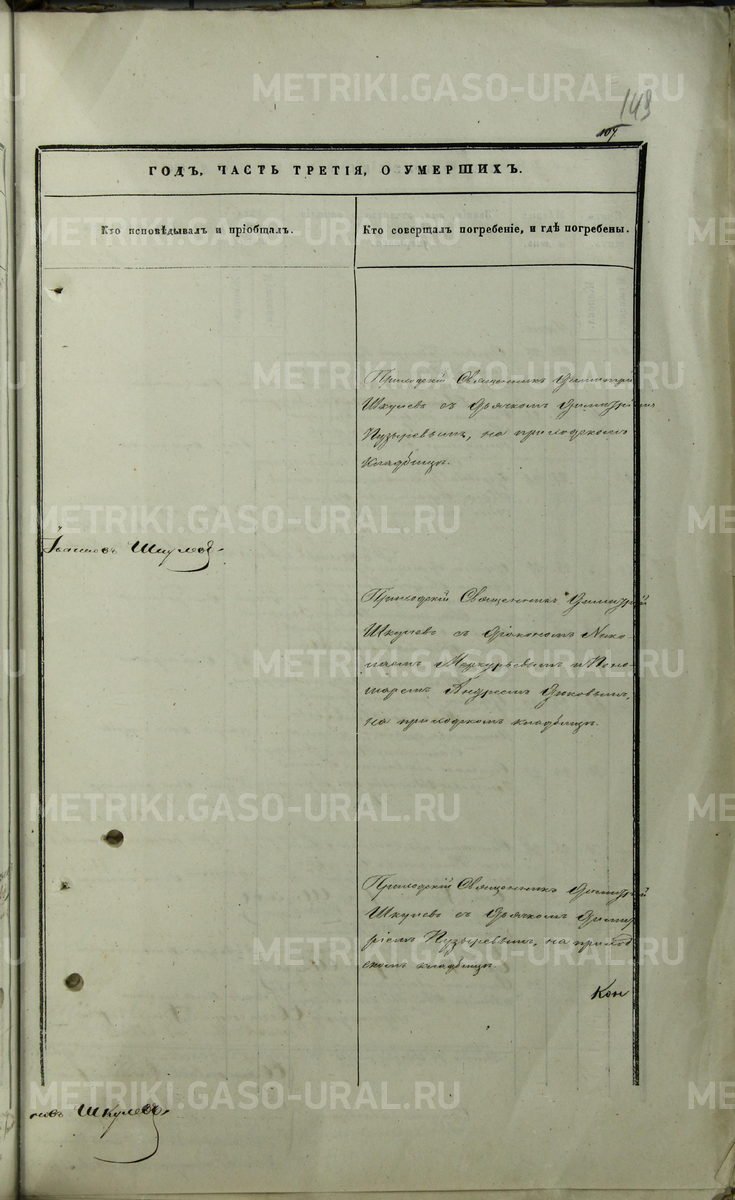 143
107
ГОДЪ, ЧАСТЬ ТРЕТІЯ, О УМЕРШИХЪ.
Кто исповѣдывалъ и пріобщалъ.
Кто совершалъ погребеніе, и гдѣ погребены.
Приходскій Священникъ Димитрій
Шкулевъ съ Дьячкомъ Димитріемъ
Пузыревымъ, на приходскомъ
кладбищѣ.
Шкулевъ
Приходскій Священникъ Димитрій
Шкулевъ съ Діакономъ Нико-
лаемъ Меркурьевымъ и Поно-
маремъ Андреемъ
на приходскомъ кладбищѣ.
Приходскій Священникъ Димитрій
Шкулевъ съ Дьячкомъ Димит-
ріемъ Пузыревымъ, на приход-
скомъ кладбищѣ.
Кон
новъ Шкулевъ
METRIKI.GASO-URAL.RU